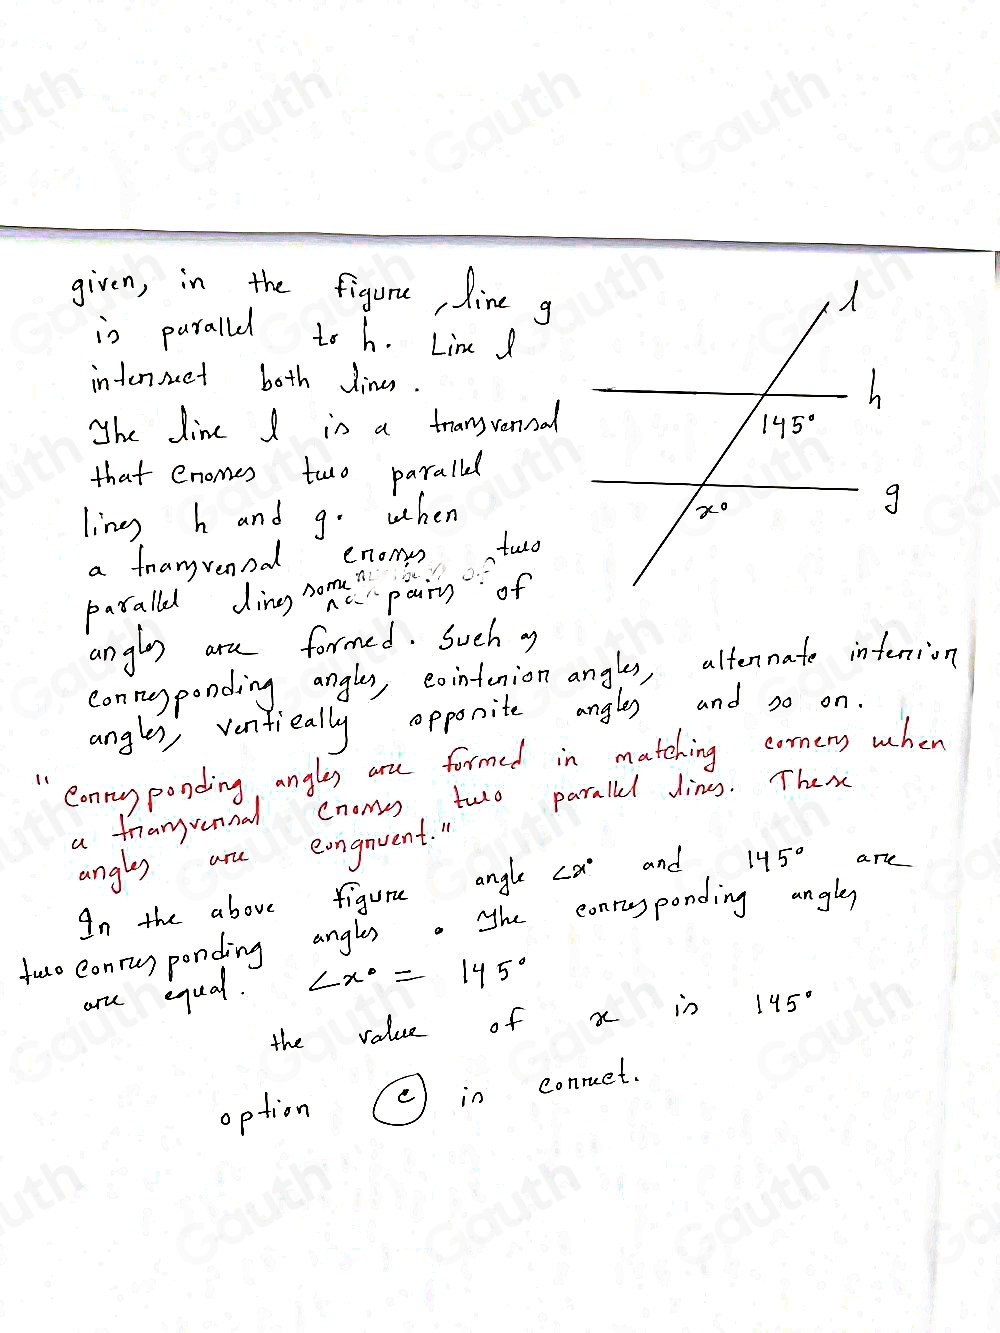 given, in the figure, line g
is parallel to h. Line l
intersect both lines.
The line l is a transversal
that crosses two parallel
lines h and g. when
a transversal crosses two
parallel lines some pairs of
angles are formed. Such as
corresponding angles, cointerior angles, alternate interior
angles, vertically opposite angles and so on.
"Corresponding angles are formed in matching corners when
a transversal crosses two parallel lines. These
angles are congruent."
In the above figure angle ∠x° and 145° are
two corresponding angles. The corresponding angles
are equal. ∠x° = 145°
the value of x is 145°
option c is correct.
l
h
145°
g
x°
Gauth